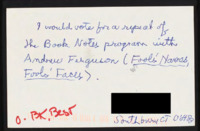 I would vote for a repeat of
the Book Notes program with
Andrew Ferguson (Fools' Names,
Fools' Faces).
O. BK, Best
Southbury CT